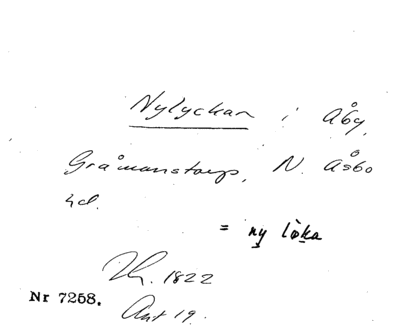 Nylyckan i Åby,
Gråmanstorp, N. Åsbo
hd.
= ny löka
1822
Nr 7258.
Ant 19.